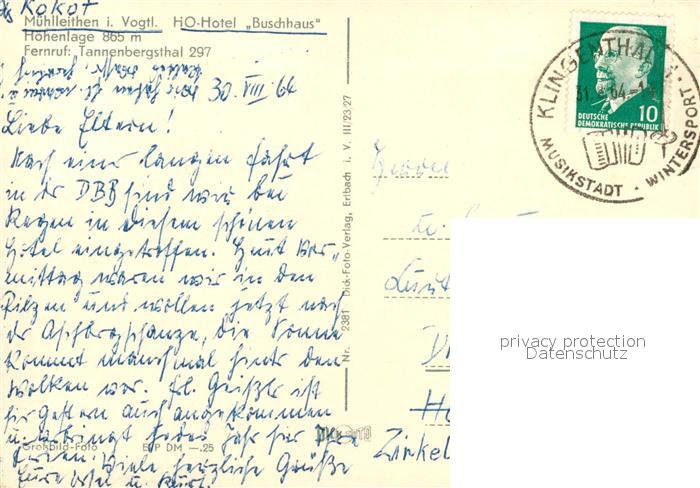 Kokot
Mühlleithen i. Vogtl. HO-Hotel „Buschhaus"
Höhenlage 865 m
Fernruf: Tannenbergsthal 297
30. VIII. 64
Liebe Eltern!
Nach einer langen Fahrt
in der DBB sind wir bei
Regen in diesem schönen
Hotel eingetroffen. Heut vor-
mittag waren wir in den
Pilzen und wollen jetzt nach
der Aschbergschanze, die Sonne
kommt manchmal hinter den
Wolken vor. Frl. Geißler ist
hier gestern auch angekommen
u. verbringt jedes Jahr hier ihre
Ferien. Viele herzliche Grüße
Eure u. Kurt.
Großbild-Foto EVP DM —.25
Nr. 2381 Dick-Foto-Verlag, Erlbach i. V. III/23/27
KLINGENTHAL 1
31.8.64
MUSIKSTADT · WINTERSPORT
DEUTSCHE
DEMOKRATISCHE REPUBLIK
10
Zirkel
privacy protection
Datenschutz